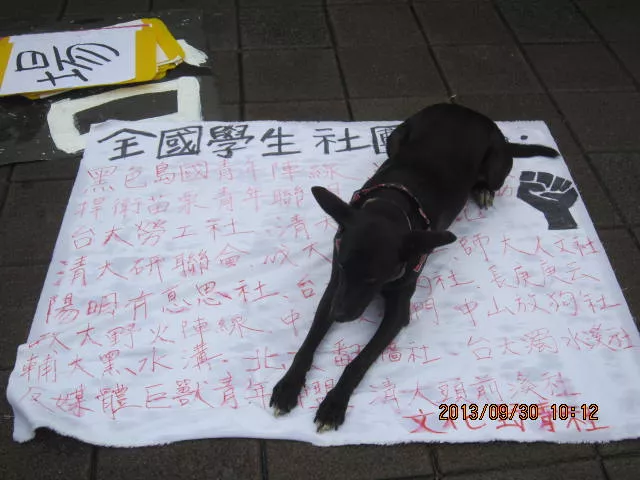 場
全國學生社團
黑色島國青年陣線
捍衛苗栗青年聯
台大勞工社、清大
清大研聯會、成大 、師大人文社
陽明有意思社、台 社、長庚
成大野火陣線、中 中山放狗社
輔大黑水溝、北大翻牆社、台大濁水溪社
反媒體巨獸青年 清大頭前溪社
文化 社
2013/09/30 10:12